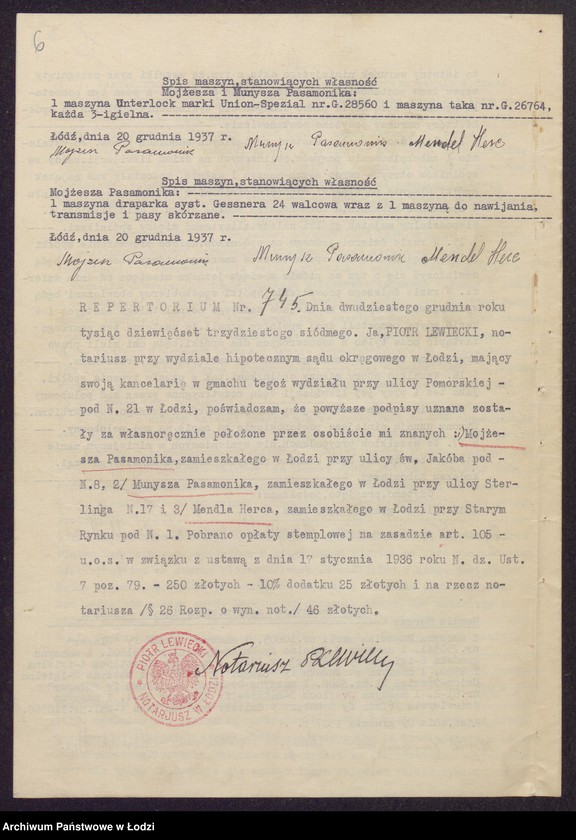 6
Spis maszyn,stanowiących własność
Mojżesza i Munysza Pasamonika:
1 maszyna Unterlock marki Union-Spezial nr.G.28560 i maszyna taka nr.G.26764,
każda 3-igielna. ----------
Łódź,dnia 20 grudnia 1937 r.
Mojżesz Pasamonik Munysz Pasamonik Mendel Herc
Spis maszyn,stanowiących własność
Mojżesza Pasamonika: ----------
1 maszyna draparka syst. Gessnera 24 walcowa wraz z 1 maszyną do nawijania,
transmisje i pasy skórzane. ----------
Łódź,dnia 20 grudnia 1937 r.
Mojżesz Pasamonik Munysz Pasamonik Mendel Herc
REPERTORIUM Nr. 745. Dnia dwudziestego grudnia roku
tysiąc dziewięćset trzydziestego siódmego. Ja,PIOTR LEWIECKI, no-
tariusz przy wydziale hipotecznym sądu okręgowego w Łodzi, mający
swoją kancelarię w gmachu tegoż wydziału przy ulicy Pomorskiej -
pod N. 21 w Łodzi, poświadczam, że powyższe podpisy uznane zosta-
ły za własnoręcznie położone przez osobiście mi znanych :1/Mojże-
sza Pasamonika,zamieszkałego w Łodzi przy ulicy św. Jakóba pod -
N.8, 2/ Munysza Pasamonika, zamieszkałego w Łodzi przy ulicy Ster-
linga N.17 i 3/ Mendla Herca, zamieszkałego w Łodzi przy Starym
Rynku pod N. 1. Pobrano opłaty stemplowej na zasadzie art. 105 -
u.o.s. w związku z ustawą z dnia 17 stycznia 1936 roku N. dz. Ust.
7 poz. 79. - 250 złotych - 10% dodatku 25 złotych i na rzecz no-
tariusza /§ 26 Rozp. o wyn. not./ 46 złotych.
Notariusz
PIOTR LEWIECKI
NOTARJUSZ W ŁODZI
Archiwum Państwowe w Łodzi